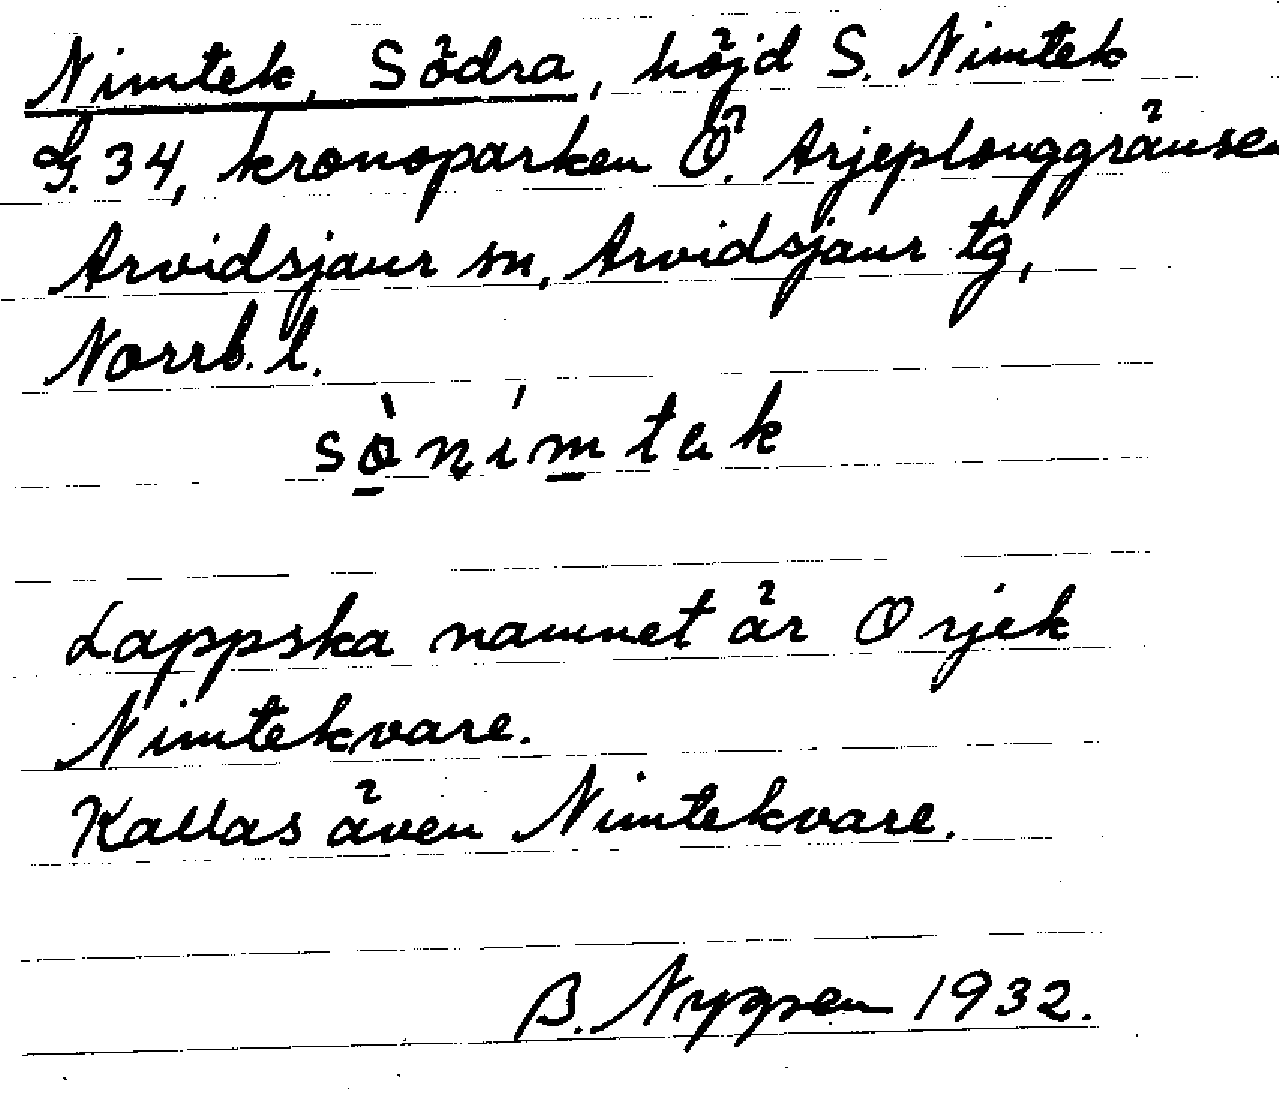 Nimtek, Södra, höjd S. Nimtek
G. 34, kronoparken Ö. Arjeplouggränsen
Arvidsjaur sn, Arvidsjaur tg,
Norrb. l.
sò̱ṇím̱tek
Lappska namnet är Orjek
Nimtekvare.
Kallas även Nimtekvare.
B. Nygren 1932.